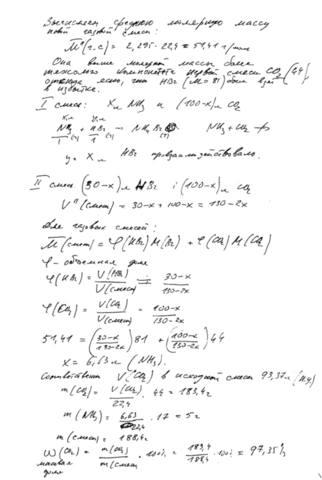 Вычисляем среднюю молярную массу
новой газовой смеси:
M̄(г.с) = 2,295·22,4 = 51,41 г/моль
Она выше молярной массы более
тяжелого компонента первой смеси CO₂ (44)
ясно, что HBr (M = 81) был взят
в избытке.
I смесь: X л NH₃ и (100-x) л CO₂
x л y л
NH₃ + HBr → NH₄Br NH₃ + CO₂ ↛
y = X л HBr прореагировало.
II смесь (30-x) л HBr и (100-x) л CO₂
V"(смеси) = 30-x + 100-x = 130-2x
Для газовых смесей:
M̄(смеси) = φ(HBr) M(HBr) + φ(CO₂) M(CO₂)
φ - объемная доля
φ(HBr) = V(HBr)/V(смеси) = 30-x/130-2x
φ(CO₂) = V(CO₂)/V(смеси) = 100-x/130-2x
51,41 = (30-x/130-2x) 81 + (100-x/130-2x) 44
x = 6,63 л (NH₃).
Соответственно V(CO₂) в исходной смеси 93,37 л (н.у.)
m(CO₂) = V(CO₂)/22,4 · 44 = 183,4 г
m(NH₃) = 6,63/22,4 · 17 = 5 г
m(смеси) = 188,4 г
ω(CO₂) = m(CO₂)/m(смеси · 100% = 183,4/188,4 · 100% = 97,35%
массовая
доля